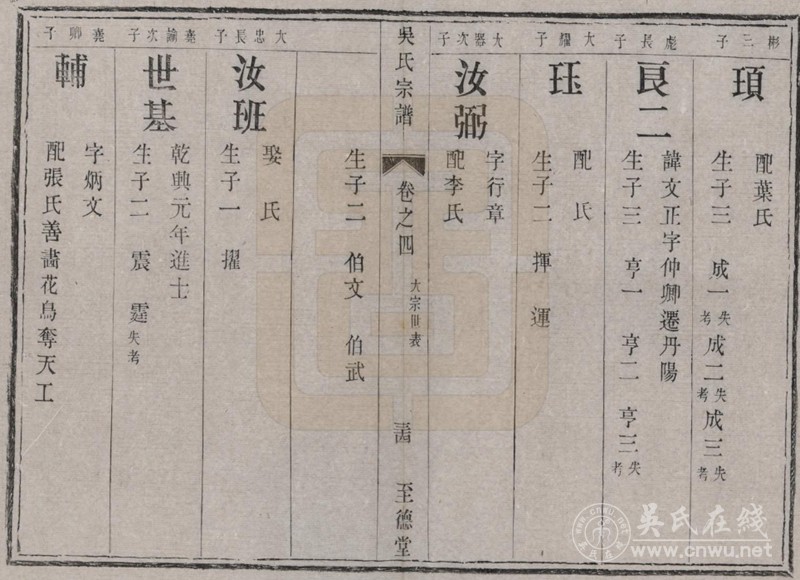 彬三子
頊
配葉氏
生子三 成一失考 成二失考 成三失考
彪長子
良二
諱文正字仲卿遷丹陽
生子三 亨一 亨二 亨三失考
大耀子
珏
配氏
生子二 揮 運
大器次子
汝弼
字行章
配李氏
生子二 伯文 伯武
吳氏宗譜
卷之四
大宗世表
至德堂
大忠長子
汝班
娶氏
生子一 擢
堯諭次子
世基
乾興元年進士
生子二 震 霆失考
堯卿子
輔
字炳文
配張氏善畵花鳥奪天工
吴氏在线
www.cnwu.net